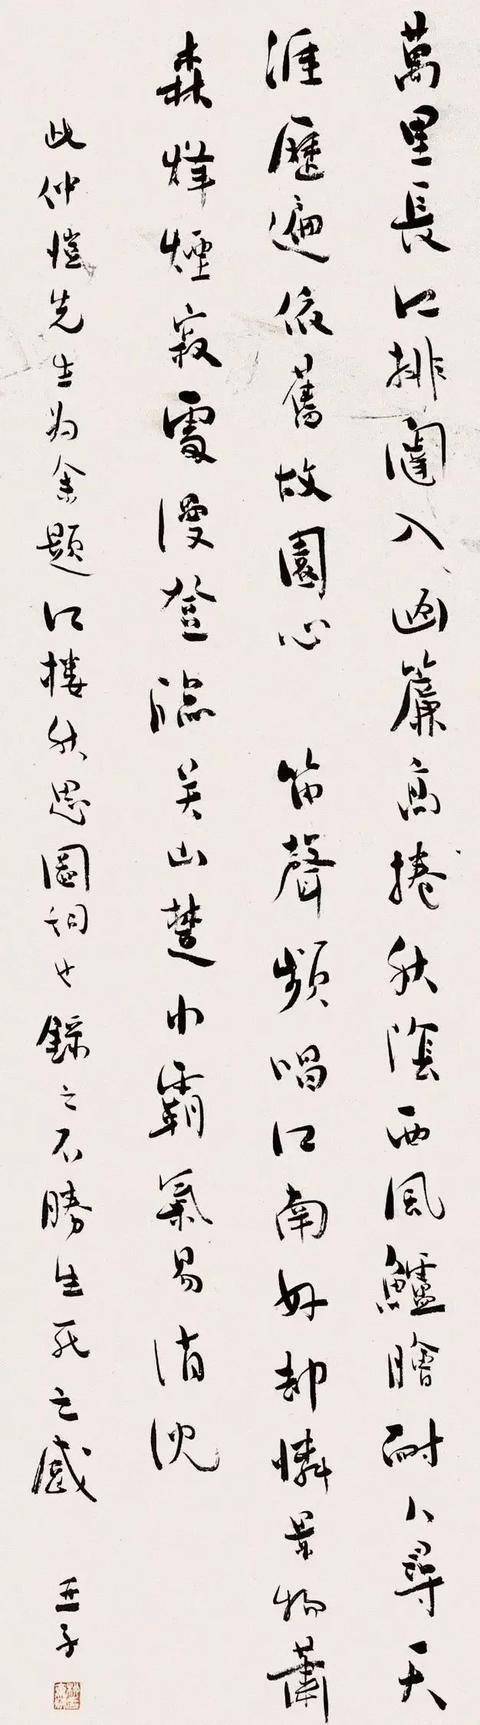 萬里長江排闥入畫簾高捲秋陰西風鱸膾耐人尋天
涯歷遍依舊故園心 笛聲頻唱江南好却憐景物蕭
森烽煙寂處漫登臨美山楚水霸氣易消沈
此仲愷先生为余題江樓秋思圖詞也錄之不勝生死之感
亞子